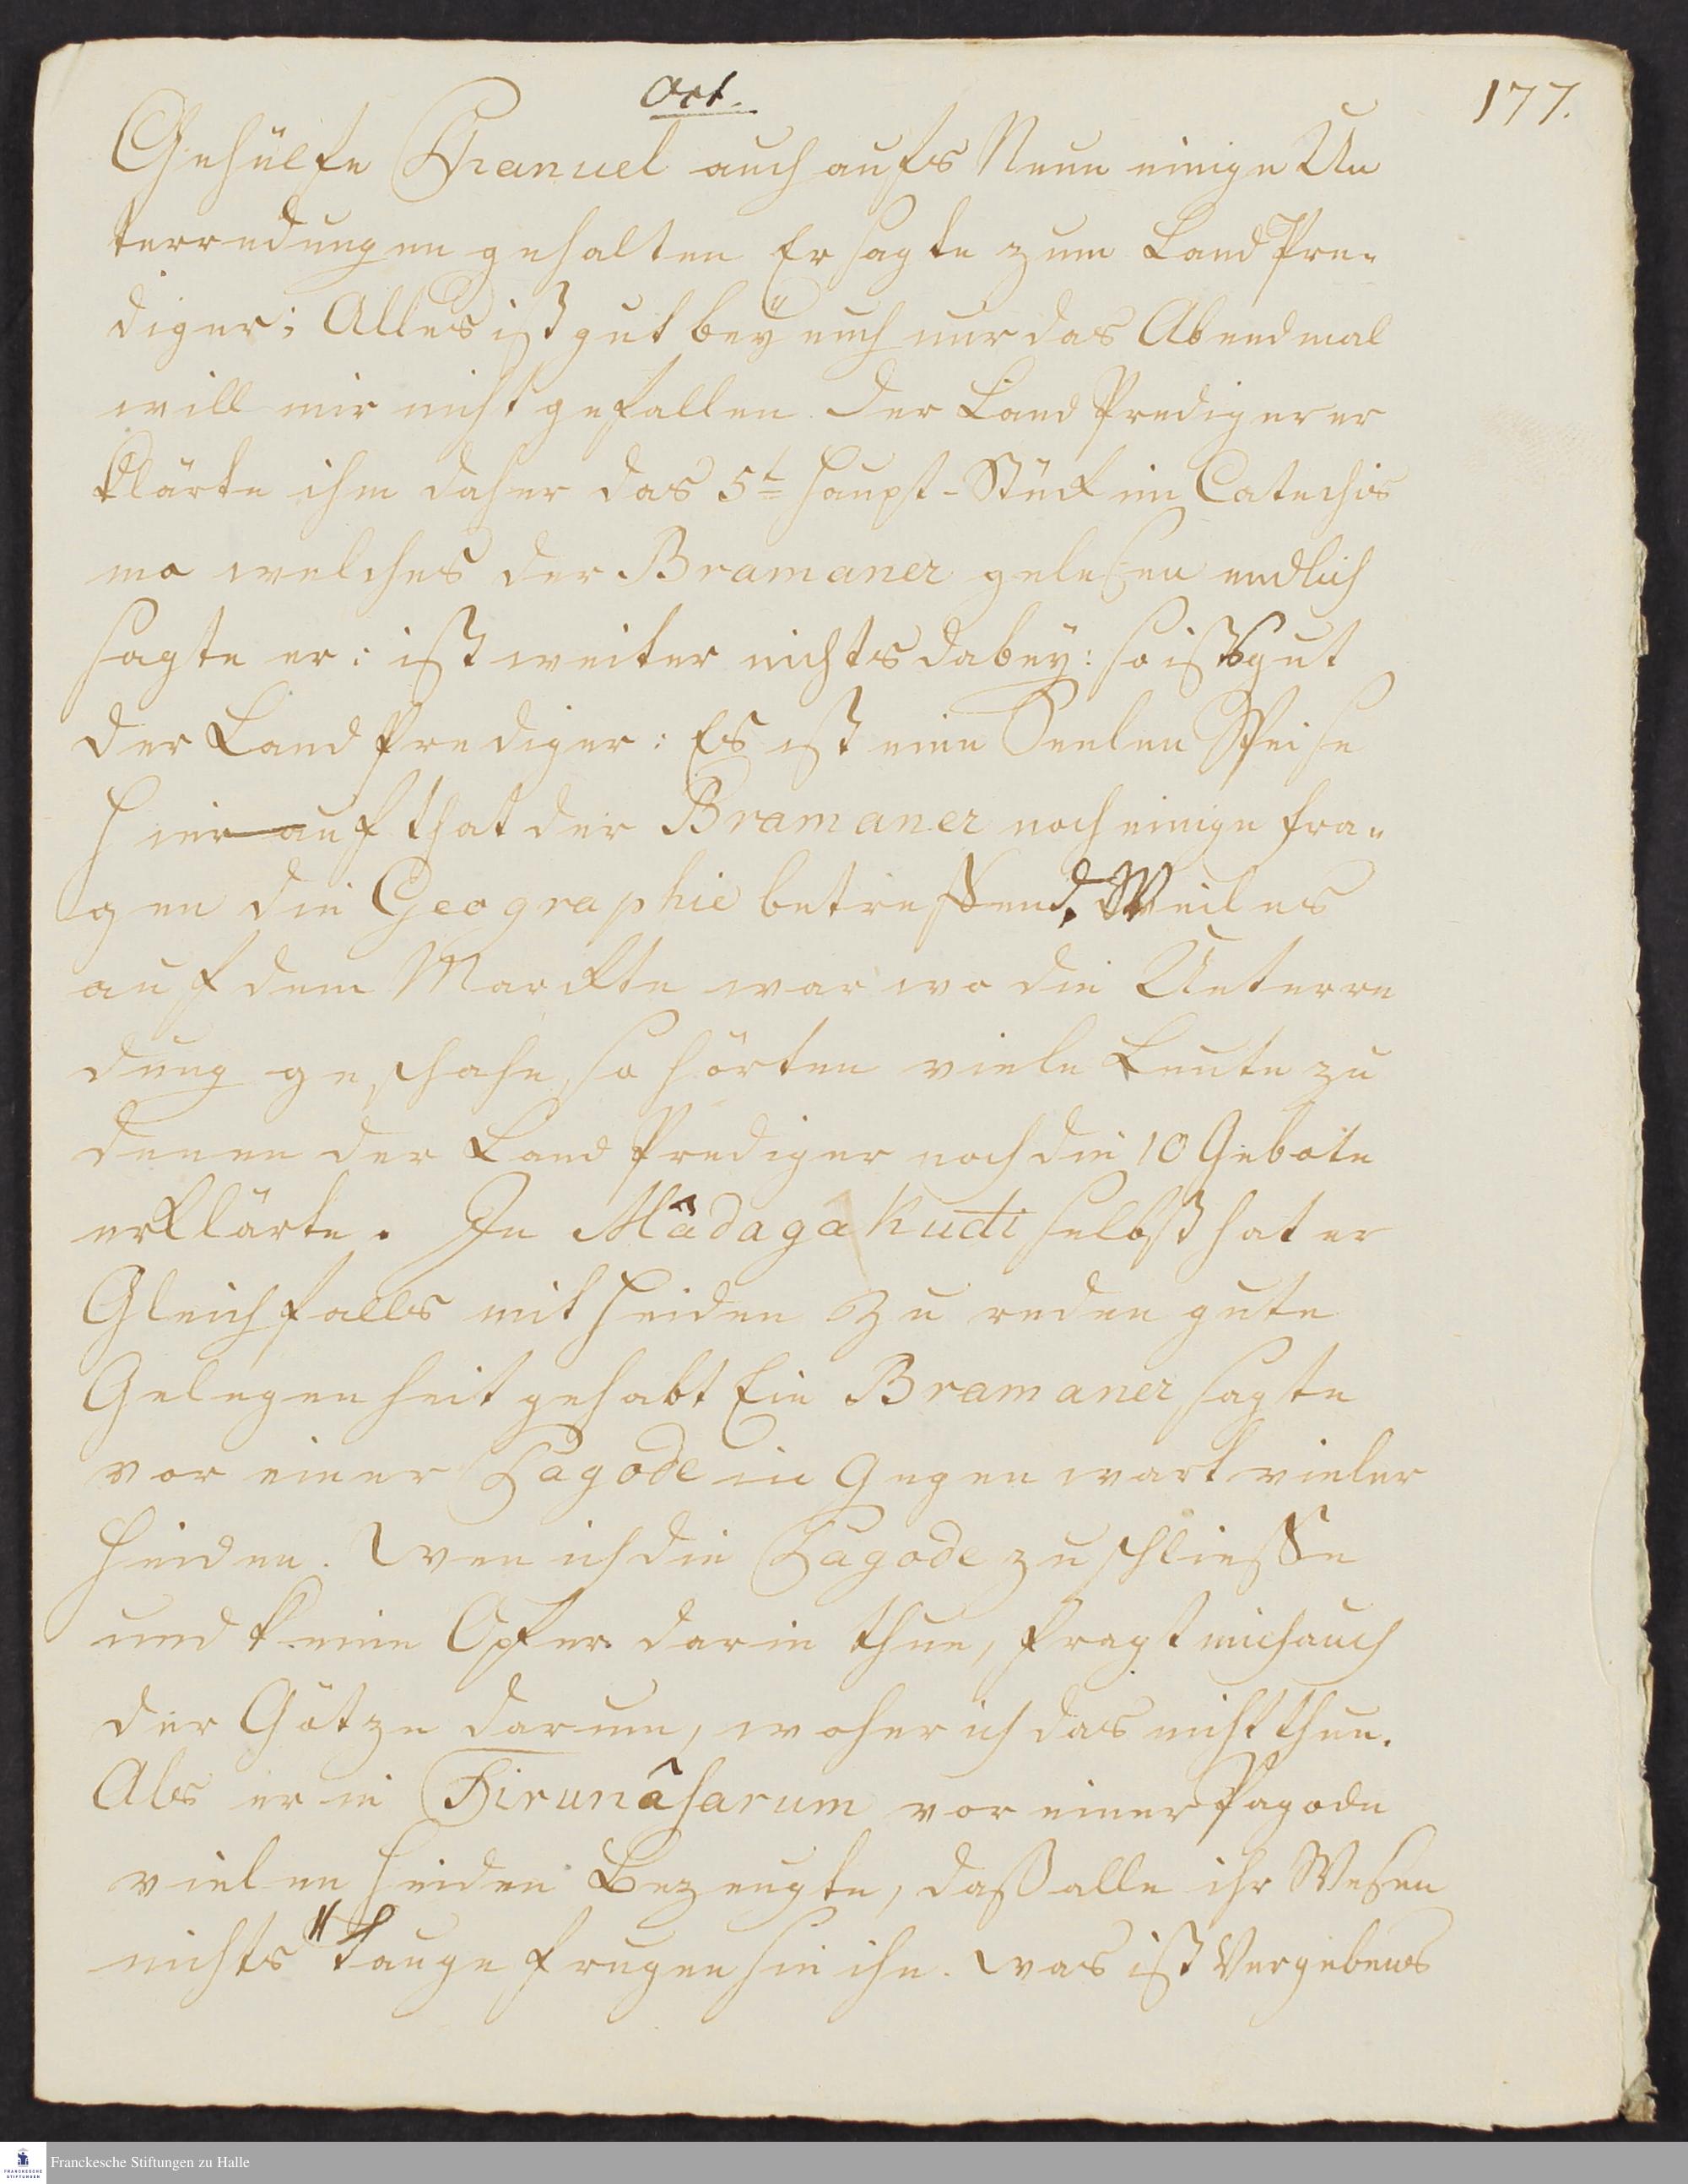 Oct.
177.
Gehülfe Pranuel auch aufs Neue einige Un
terredungen gehalten Er sagte zum Land Pre-
diger; Alles ist gut beÿ euch nur das Abendmal
will mir nicht gefallen der Land Prediger er
klärte ihm daher das 5t Haupt-Stück im Catechis
mo welches der Bramaner gelesen endlich
sagte er: ist weiter nichts dabeÿ: so ists gut
der Land Prediger: Es ist eine Seelen Speise
Hierauf that der Bramaner noch einige Fra-
gen die Geographie betreffend. Weil es
auf dem Marckte war wo die Unterre
dung geschahe, so hörten viele Leute zu
denen der Land Prediger noch die 10 Gebote
erklärte. In Mâdagâkudi selbst hat er
Gleichfalls mit Heiden zu reden gute
Gelegenheit gehabt Ein Bramaner sagte
vor einer Pagode in Gegenwart vieler
Heiden. Wen ich die Pagode zuschließe
und keine Opfer darin thue, fragt mich auch
der Götze darum, woher ich das nicht thue.
Als er in Tirunâsarum vor einer Pagode
vielen Heiden Bezeugte, daß alle ihr Wesen
nichts tauge frugen sie ihn. was ist Vergebens
Franckesche Stiftungen zu Halle
FRANCKESCHE
STIFTUNGEN